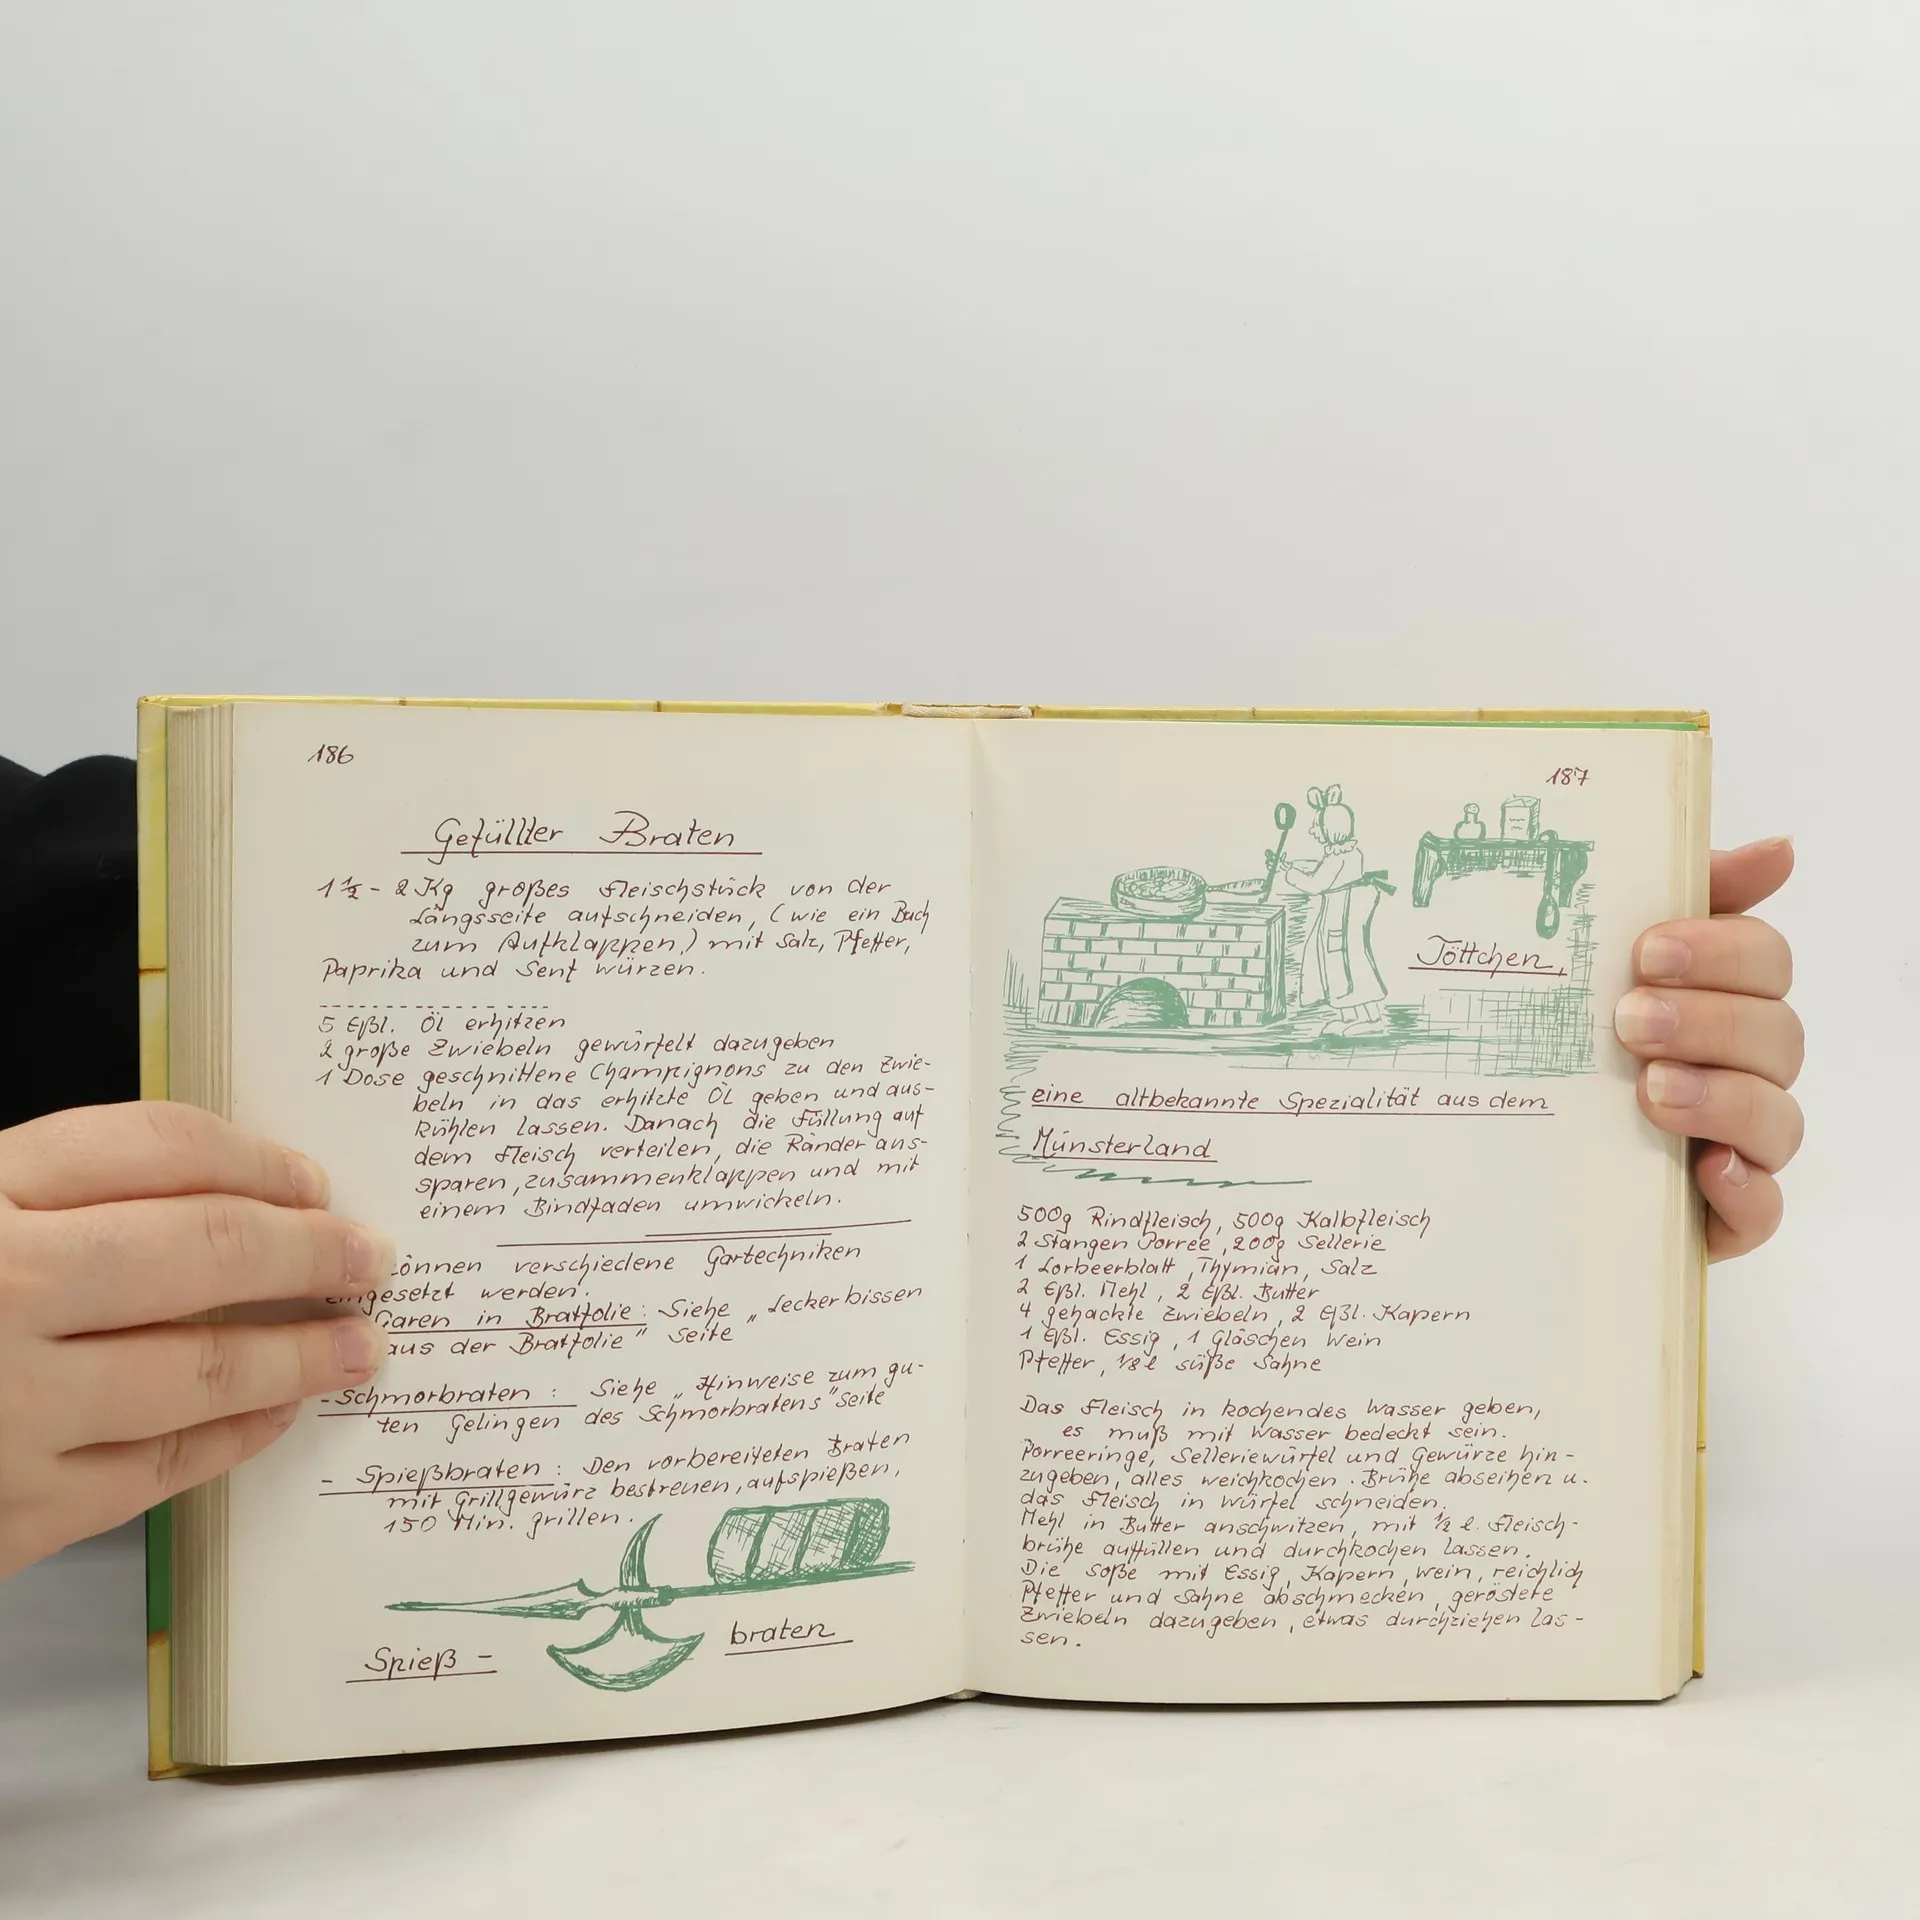 186
Gefüllter Braten
1 1/2 - 2 Kg großes Fleischstück von der
Längsseite aufschneiden, (wie ein Buch
zum Aufklappen,) mit Salz, Pfeffer,
Paprika und Senf würzen.
5 Eßl. Öl erhitzen
2 große Zwiebeln gewürfelt dazugeben
1 Dose geschnittene Champignons zu den Zwie-
beln in das erhitzte Öl geben und aus-
kühlen lassen. Danach die Füllung auf
dem Fleisch verteilen, die Ränder aus-
sparen, zusammenklappen und mit
einem Bindfaden umwickeln.
können verschiedene Gartechniken
eingesetzt werden.
Garen in Bratfolie: Siehe „Leckerbissen
aus der Bratfolie" Seite
- Schmorbraten : Siehe „Hinweise zum gu-
ten Gelingen des Schmorbratens" Seite
- Spießbraten : Den vorbereiteten Braten
mit Grillgewürz bestreuen, aufspießen,
150 Min. grillen.
Spieß - braten
187
Töttchen,
eine altbekannte Spezialität aus dem
Münsterland
500g Rindfleisch, 500g Kalbfleisch
2 Stangen Porree, 200g Sellerie
1 Lorbeerblatt, Thymian, Salz
2 Eßl. Mehl, 2 Eßl. Butter
4 gehackte Zwiebeln, 2 Eßl. Kapern
1 Eßl. Essig, 1 Gläschen Wein
Pfeffer, 1/8 l süße Sahne
Das Fleisch in kochendes Wasser geben,
es muß mit Wasser bedeckt sein.
Porreeringe, Selleriewürfel und Gewürze hin-
zugeben, alles weichkochen. Brühe abseihen u.
das Fleisch in Würfel schneiden.
Mehl in Butter anschwitzen, mit 1/2 l. Fleisch-
brühe auffüllen und durchkochen lassen.
Die Soße mit Essig, Kapern, Wein, reichlich
Pfeffer und Sahne abschmecken, geröstete
Zwiebeln dazugeben, etwas durchziehen las-
sen.